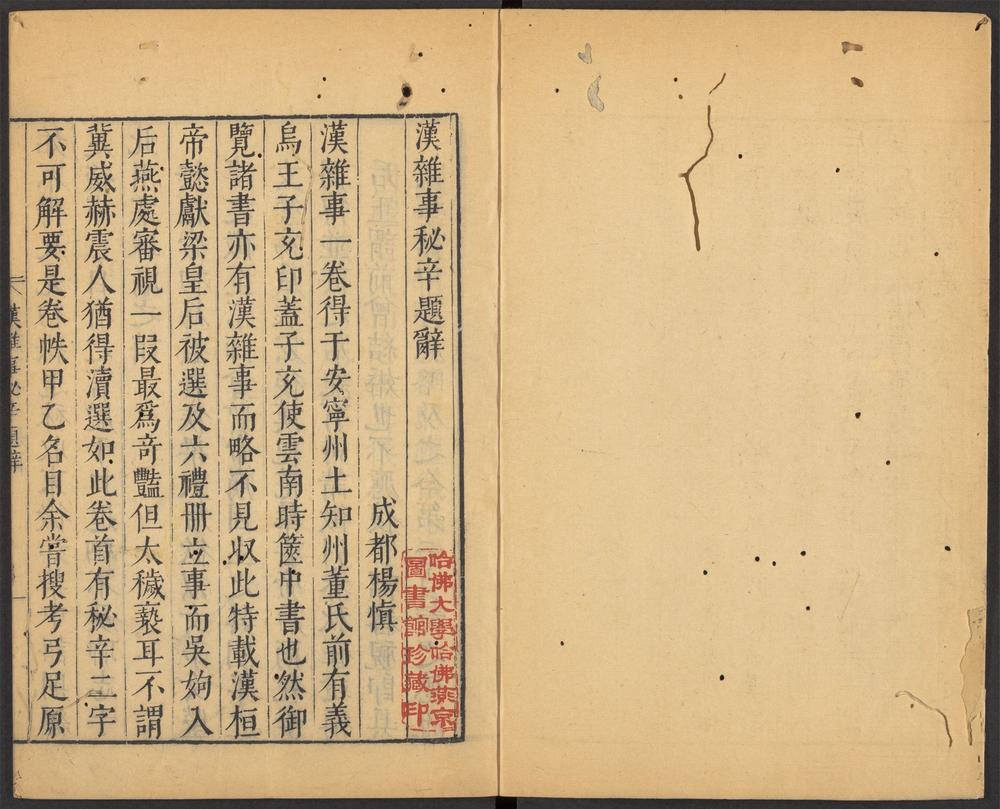 漢雜事秘辛題辭
成都楊慎
漢雜事一卷得于安寧州土知州董氏前有義
烏王子充印蓋子充使雲南時篋中書也然御
覽諸書亦有漢雜事而略不見収此特載漢桓
帝懿獻梁皇后被選及六禮冊立事而吳姁入
后燕處審視一段最爲奇豔但太穢褻耳不謂
冀威赫震人猶得瀆選如此卷首有秘辛二字
不可解要是卷帙甲乙名目余嘗搜考弓足原
漢雜事秘辛題辭
哈佛大學哈佛燕京
圖書館珍藏印